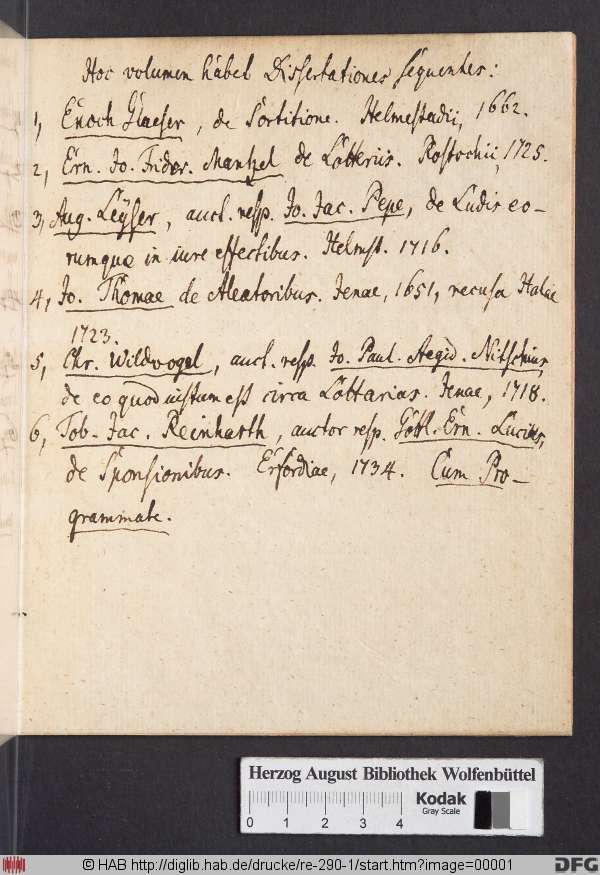 Hoc volumen habet Dissertationes sequentes:
1, Enoch Glaeser, de Sortitione. Helmestadii, 1662.
2, Ern. Jo. Frider. Mantzel de Lotteriis. Rostochii, 1725.
3, Aug. Leyser, auct. resp. Jo. Jac. Pepe, de Ludis eo-
rumque in iure effectibus. Helmst. 1716.
4, Jo. Thomae de Aleatoribus. Jenae, 1651, recusa Halae
1723.
5, Chr. Wildvogel, auct. resp. Jo. Paul. Aegid. Nitschius,
de eo quod iustum est circa Lottarias. Jenae, 1718.
6, Tob. Jac. Reinharth, auctor resp. Gottl. Ern. Lucius,
de Sponsionibus. Erfordiae, 1734. Cum Pro-
grammate.
Herzog August Bibliothek Wolfenbüttel
Kodak
Gray Scale
0 1 2 3 4
© HAB http://diglib.hab.de/drucke/re-290-1/start.htm?image=00001
DFG